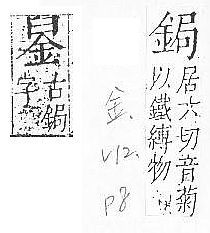 鋦
居六切音菊
以鐵縛物
金.
V12.
P8
古鋦
字